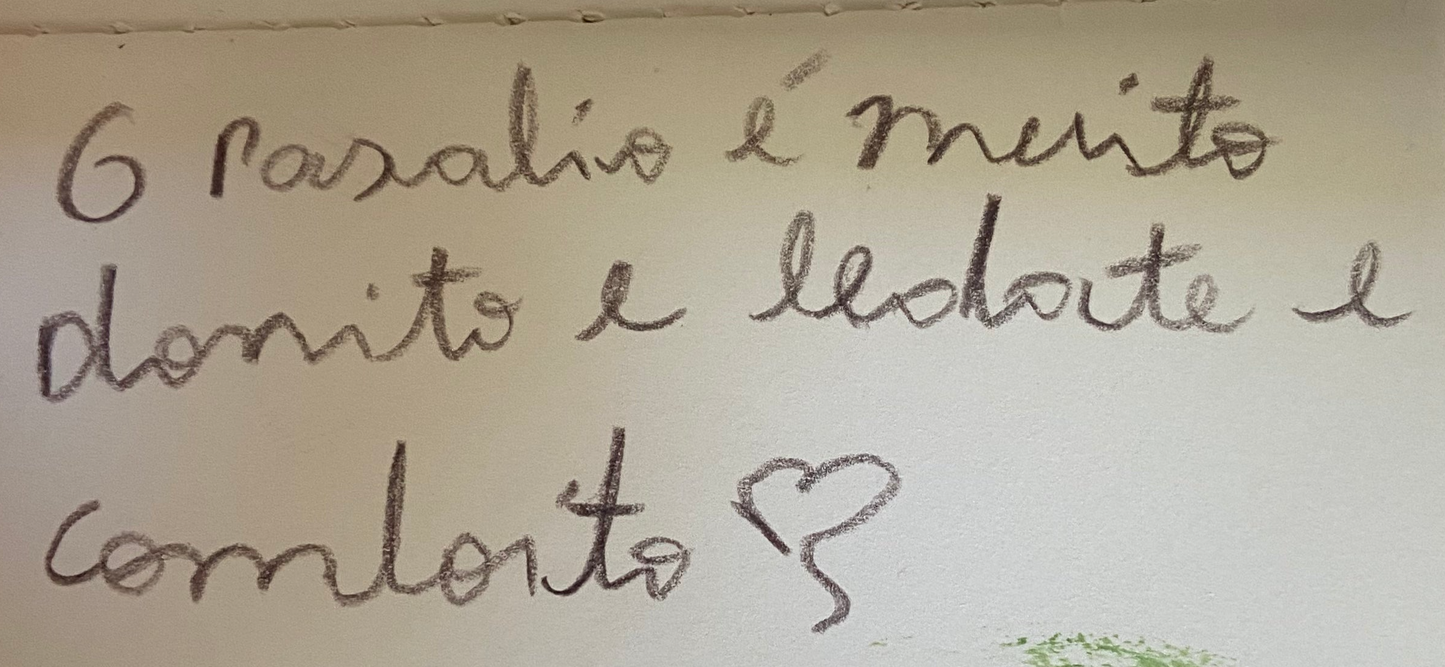 O rasalio é muito
domito e ledate e
comlorto